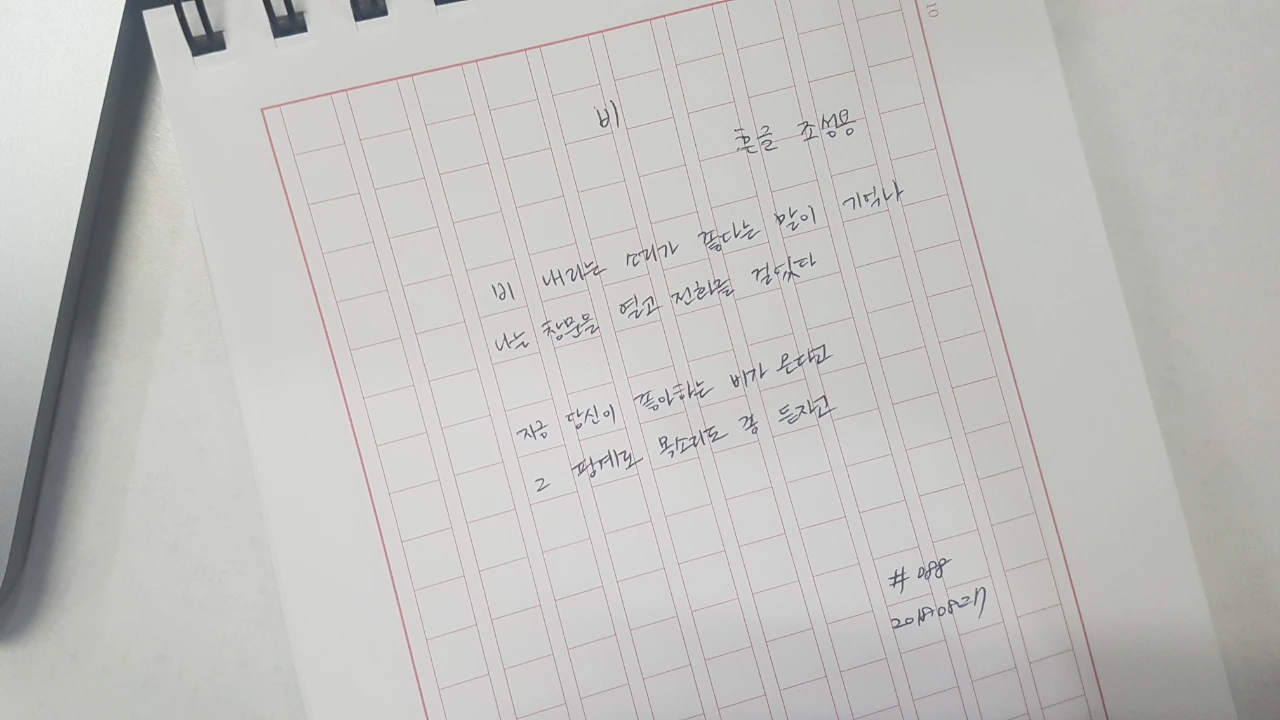 비
흔글 조성용
비 내리는 소리가 좋다는 말이 기억나
나는 창문을 열고 전화를 걸었다
지금 당신이 좋아하는 비가 온다고
그 핑계로 목소리도 좀 듣자고
# 088
2018.08.27
10